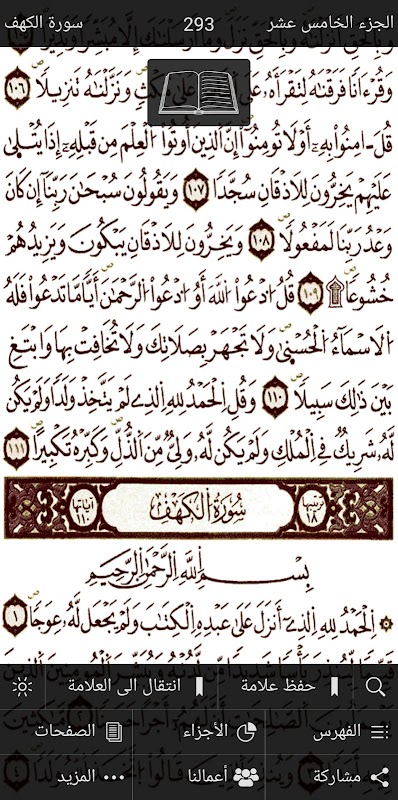 الجزء الخامس عشر 293 سورة الكهف
وَقُرْءَانا فَرَقْنَٰهُ لِتَقْرَأَهُۥ عَلَى عَلَىٰ مُكْثٖ وَنَزَّلْنَٰهُ تَنزِيلاٗ ١٠٦
قُلَ اٰمِنُواْ بِهِۦٓ أَوْ لَا تُومِنُوٓاْ إِنَّ اَلذِينَ أُوتُواْ اُلْعِلْمَ مِن قَبْلِهِۦٓ إِذَا يُتْلَىٰ
عَلَيْهِمْ يَخِرُّونَ لِلَاذْقَانِ سُجَّداٗ ١٠٧ وَيَقُولُونَ سُبْحَٰنَ رَبِّنَآ إِن كَانَ
وَعْدُ رَبِّنَا لَمَفْعُولاٗ ١٠٨ وَيَخِرُّونَ لِلَاذْقَانِ يَبْكُونَ وَيَزِيدُهُمْ
خُشُوعاٗ ١٠٩ قُلُ اُدْعُواْ اُللَّهَ أَوُ اُدْعُواْ اُلرَّحْمَٰنَ أَيّاٗ مَّا تَدْعُواْ فَلَهُ
اُلَاسْمَآءُ اُلْحُسْنَىٰ وَلَا تَجْهَرْ بِصَلَاتِكَ وَلَا تُخَافِتْ بِهَا وَابْتَغِ
بَيْنَ ذَٰلِكَ سَبِيلاٗ ١١٠ وَقُلِ اِلْحَمْدُ لِلهِ اِلذِے لَمْ يَتَّخِذْ وَلَداٗ وَلَمْ يَكُن
لَّهُۥ شَرِيكٞ فِے اِلْمُلْكِ وَلَمْ يَكُن لَّهُۥ وَلِيّٞ مِّنَ اَلذُّلِّ وَكَبِّرْهُ تَكْبِيراً ١١١
ترتيبها ١٨ سُورَةُ الْكَهْفِ آياتها ١١٠
بِسْمِ اللَّهِ الرَّحْمَٰنِ الرَّحِيمِ
اِلْحَمْدُ لِلهِ اِلذِےٓ أَنزَلَ عَلَىٰ عَبْدِهِ اِلْكِتَٰبَ وَلَمْ يَجْعَل لَّهُۥ عِوَجاٗ ١
حفظ علامة انتقال الى العلامة
الفهرس الأجزاء الصفحات
مشاركة أعمالنا المزيد